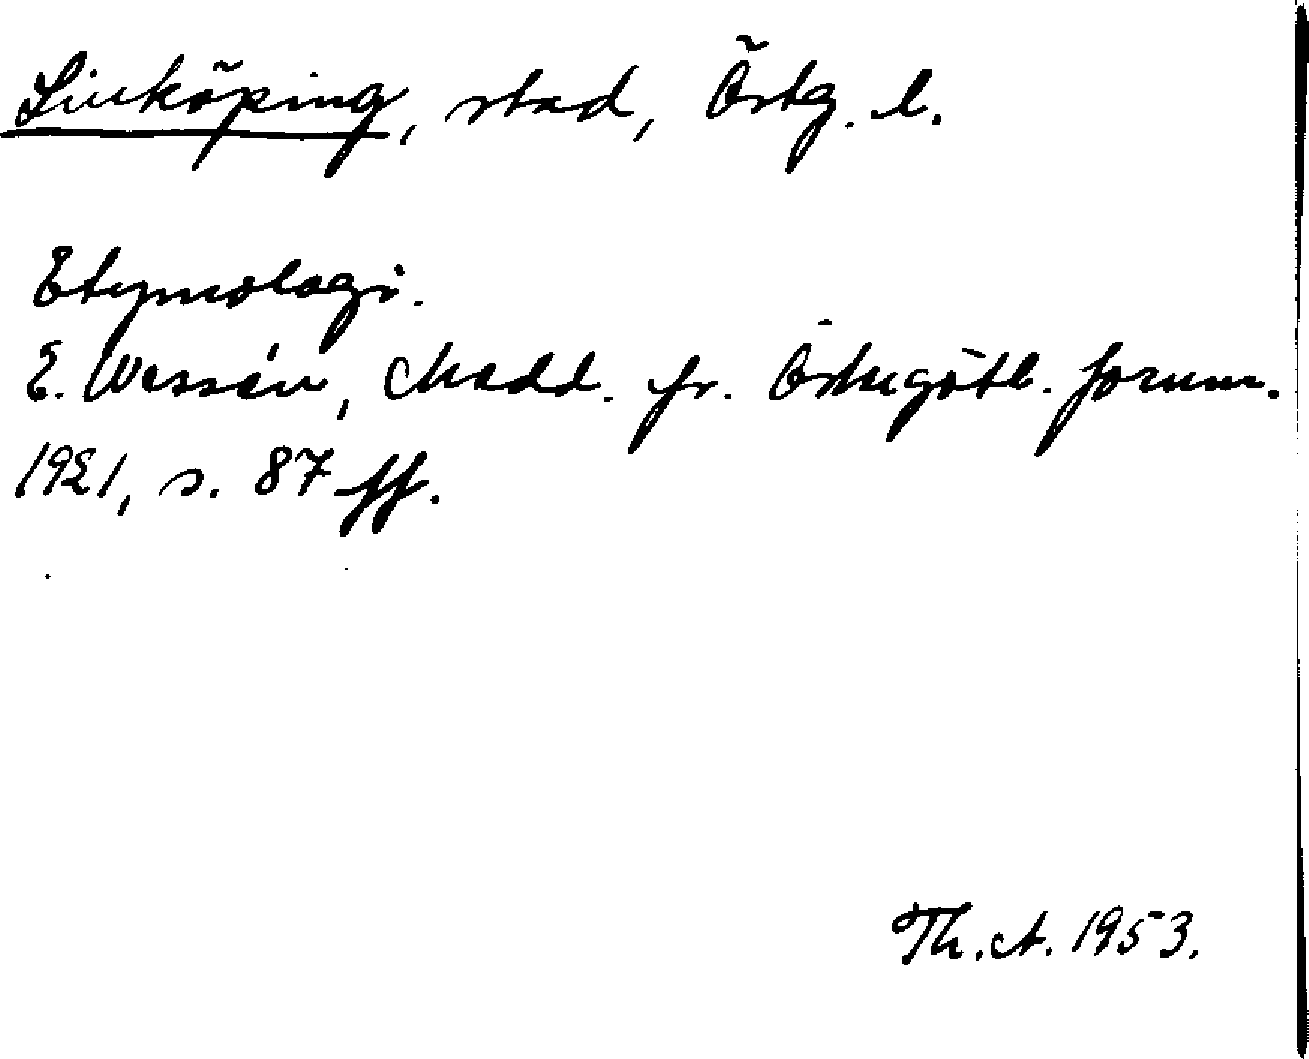 Linköping, stad, Östg. l.
Etymologi.
E. Wessén, Medd. fr. Östergötl. fornm.
1921, s. 87 ff.
Th. A. 1953.